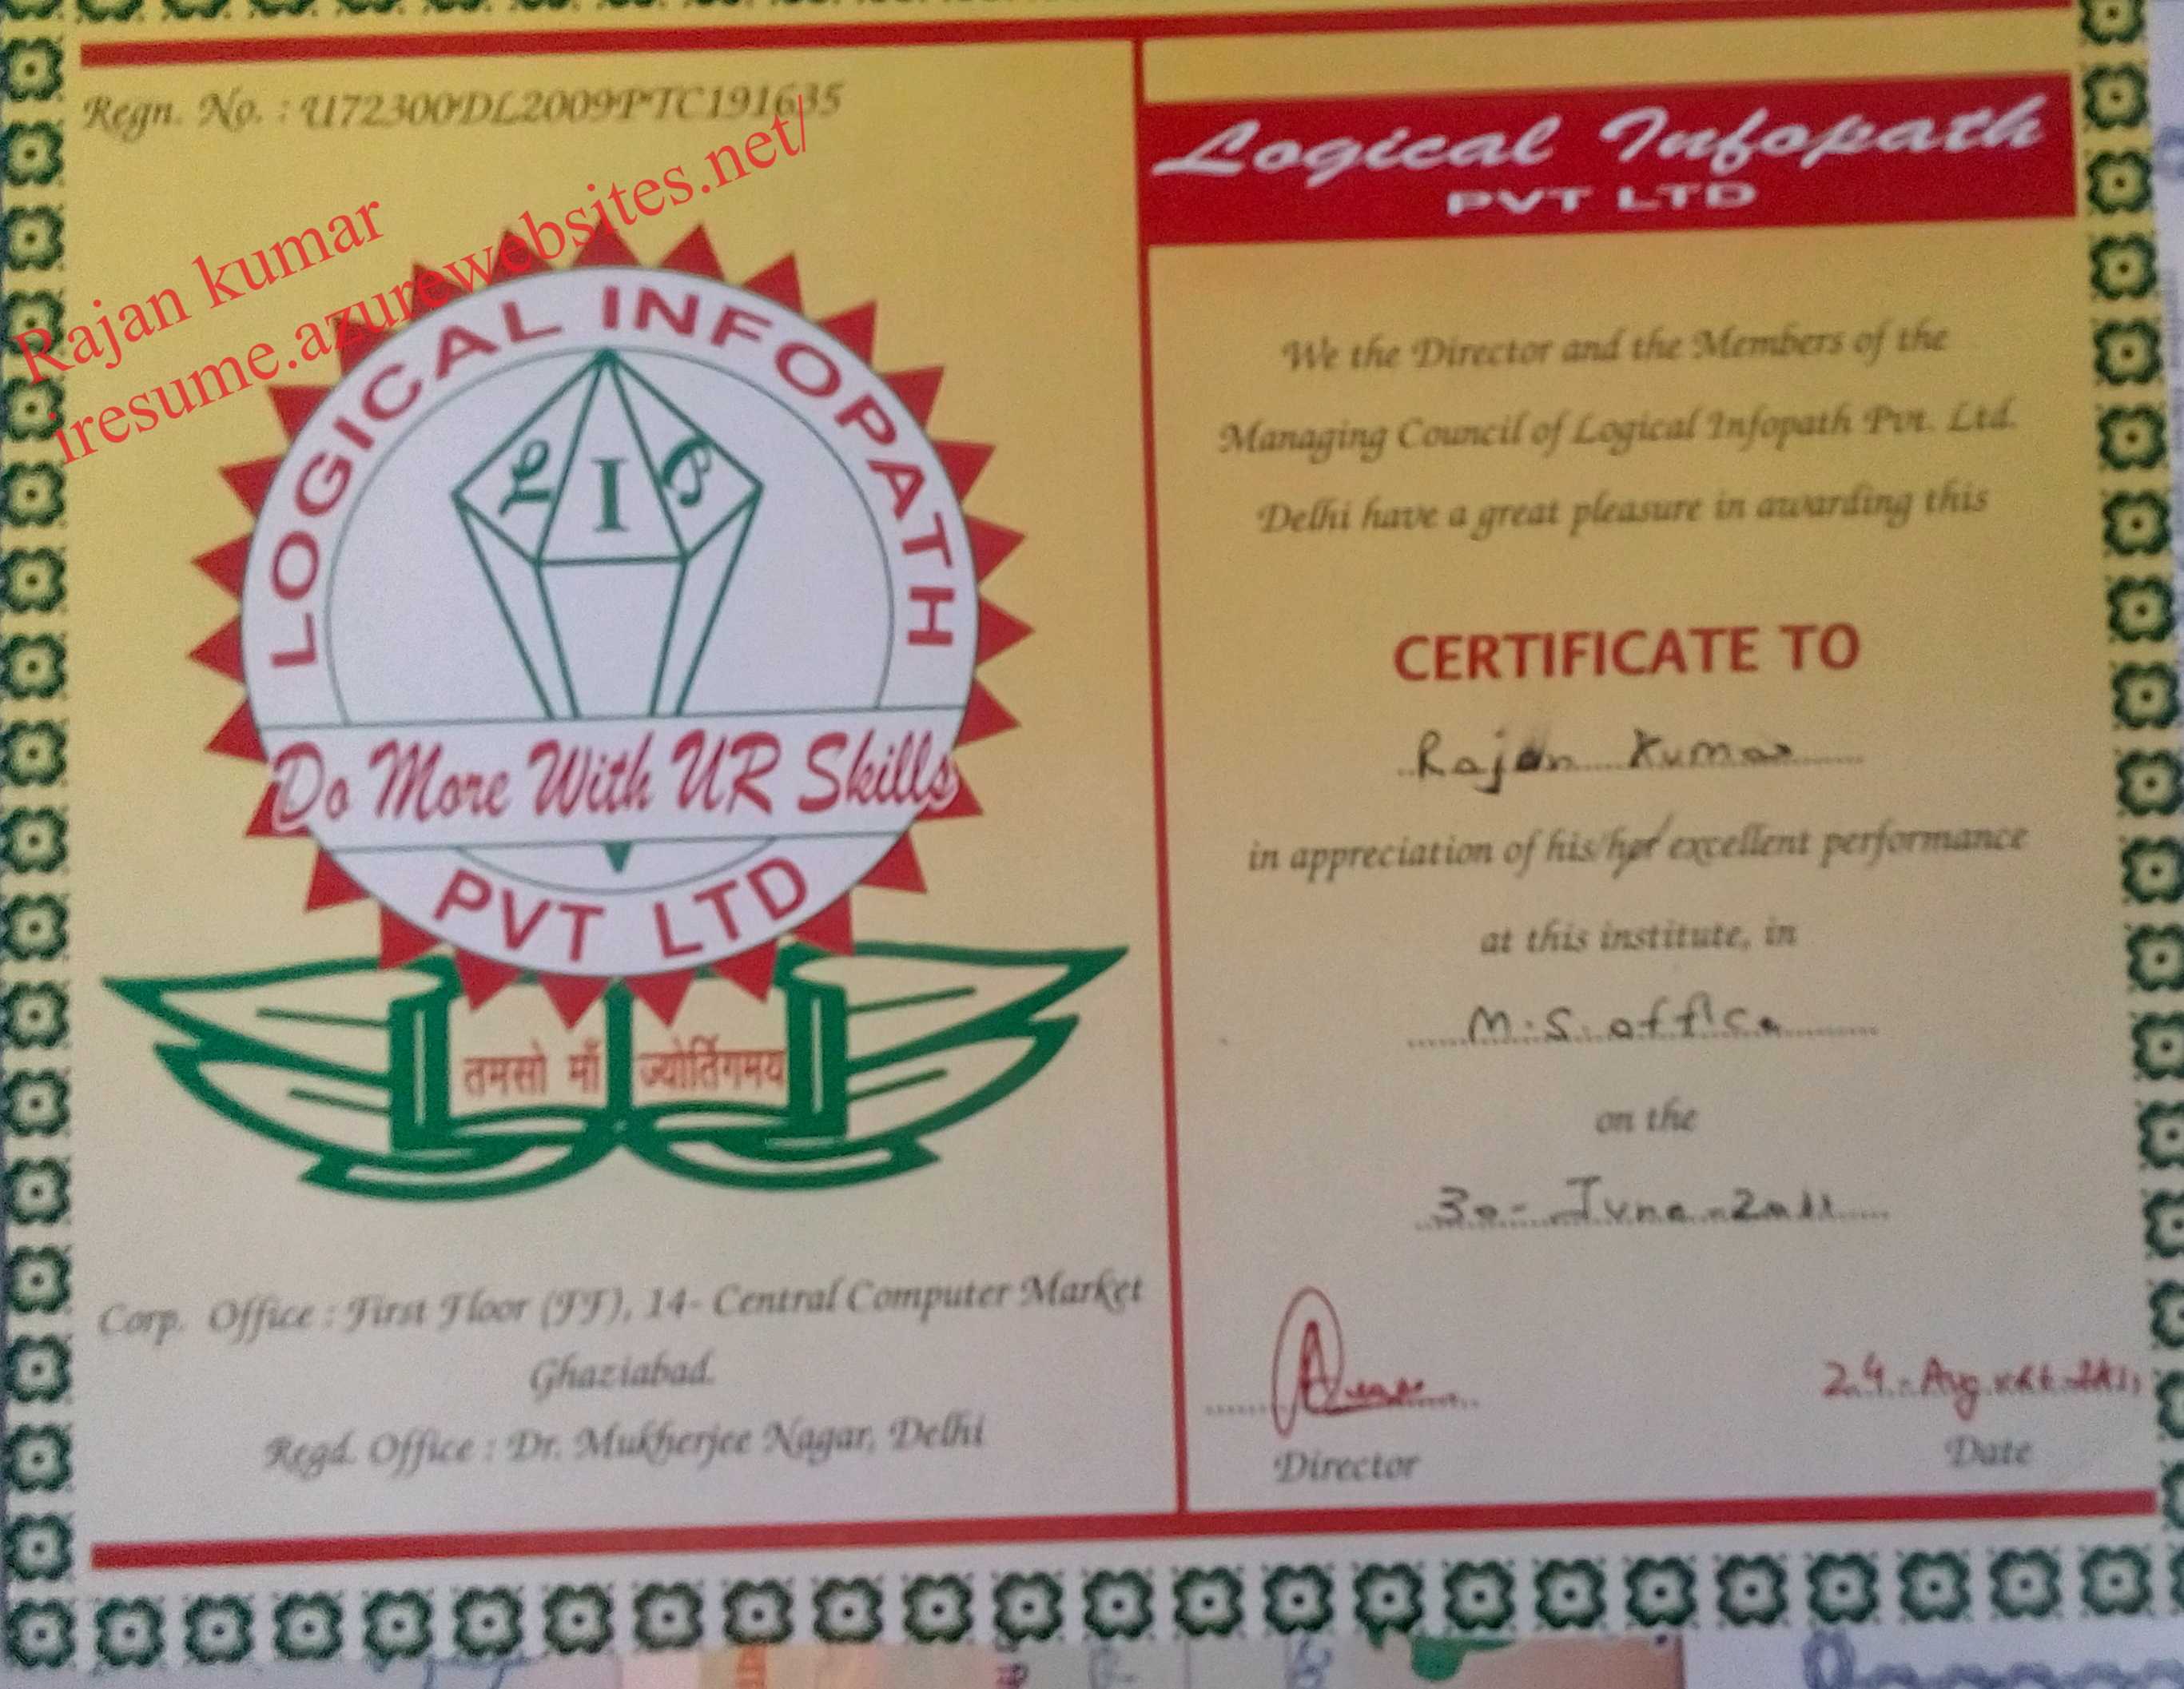 Regn. No. : U72300DL2009PTC191635
Rajan kumar
iresume.azurewebsites.net/
LOGICAL INFOPATH
L I C
Do More With UR Skills
PVT LTD
तमसो माँ ज्योर्तिगमय
Corp. Office : First Floor (FF), 14- Central Computer Market
Ghaziabad.
Regd. Office : Dr. Mukherjee Nagar, Delhi
Logical Infopath
PVT LTD
We the Director and the Members of the
Managing Council of Logical Infopath Pvt. Ltd.
Delhi have a great pleasure in awarding this
CERTIFICATE TO
Rajan Kumar
in appreciation of his/her excellent performance
at this institute, in
M.S. office
on the
30 - June - 2011
24 - August 2011
Director
Date